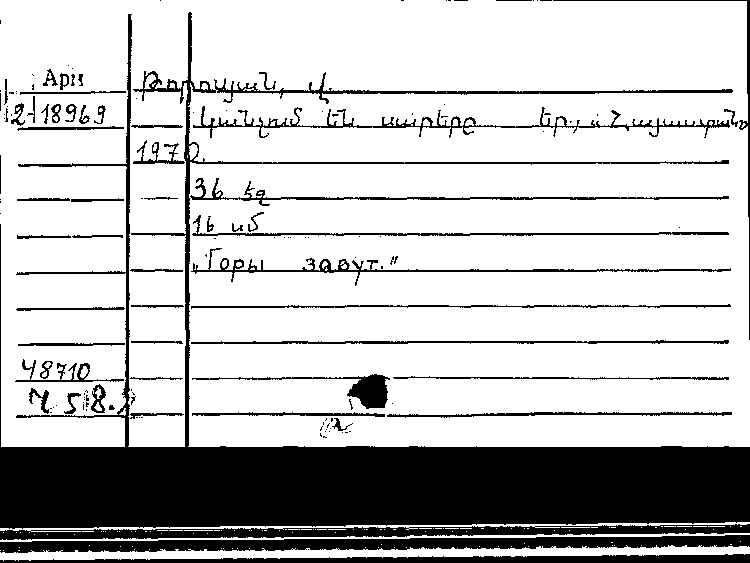 Арм Թորոսյան, Վ.
2-18969 Կանչում են սարերը Եր., «Հայաստան»
1970.
36 էջ
16 սմ
„Горы зовут."
48710